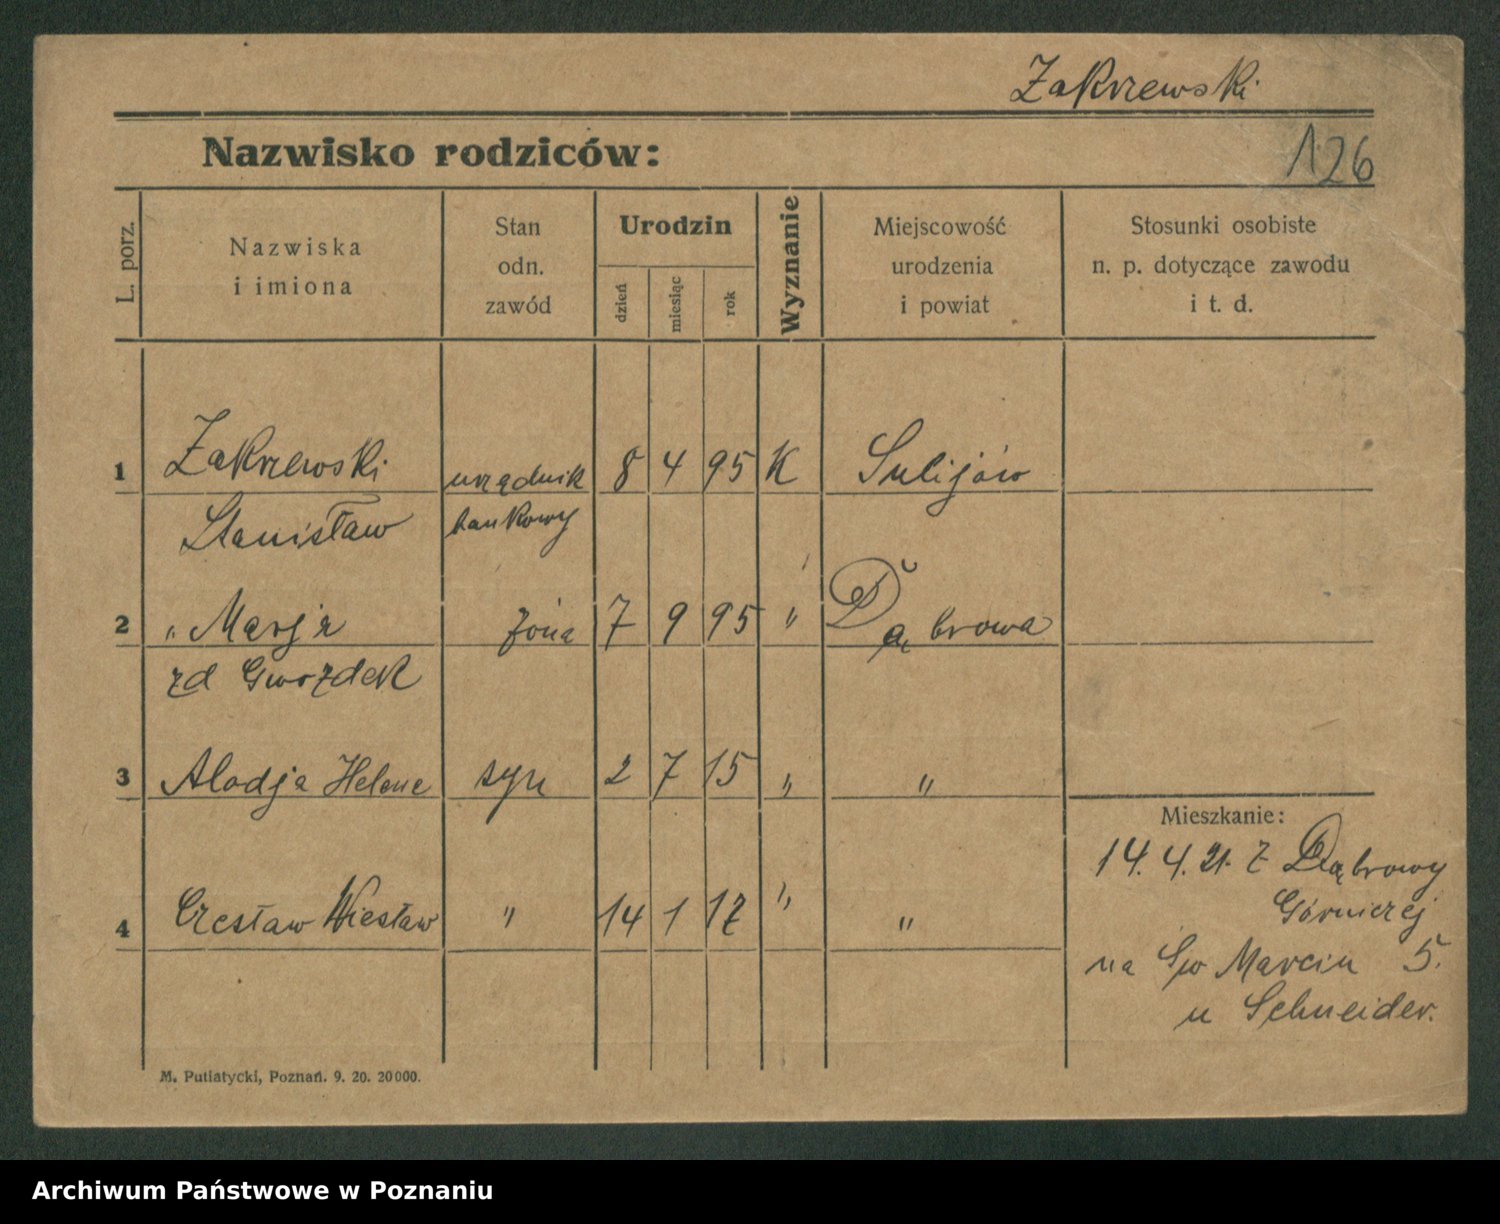 Zakrzewski
Nazwisko rodziców:
126
L. porz.
Nazwiska
i imiona
Stan
odn.
zawód
Urodzin
dzień
miesiąc
rok
Wyznanie
Miejscowość
urodzenia
i powiat
Stosunki osobiste
n. p. dotyczące zawodu
i t. d.
1 Zakrzewski urzędnik 8 4 95 K Sulijów
Stanisław bankowy
2 " Marja żona 7 9 95 " Dąbrowa
zd Gwozdek
3 Alodja Helene syn 2 7 15 " "
4 Czesław Wiesław " 14 1 17 " "
Mieszkanie:
14. 4. 21. Z Dąbrowy
Górniczej
na Św Marcin 5.
u Schneider.
M. Putiatycki, Poznań. 9. 20. 20000.
Archiwum Państwowe w Poznaniu